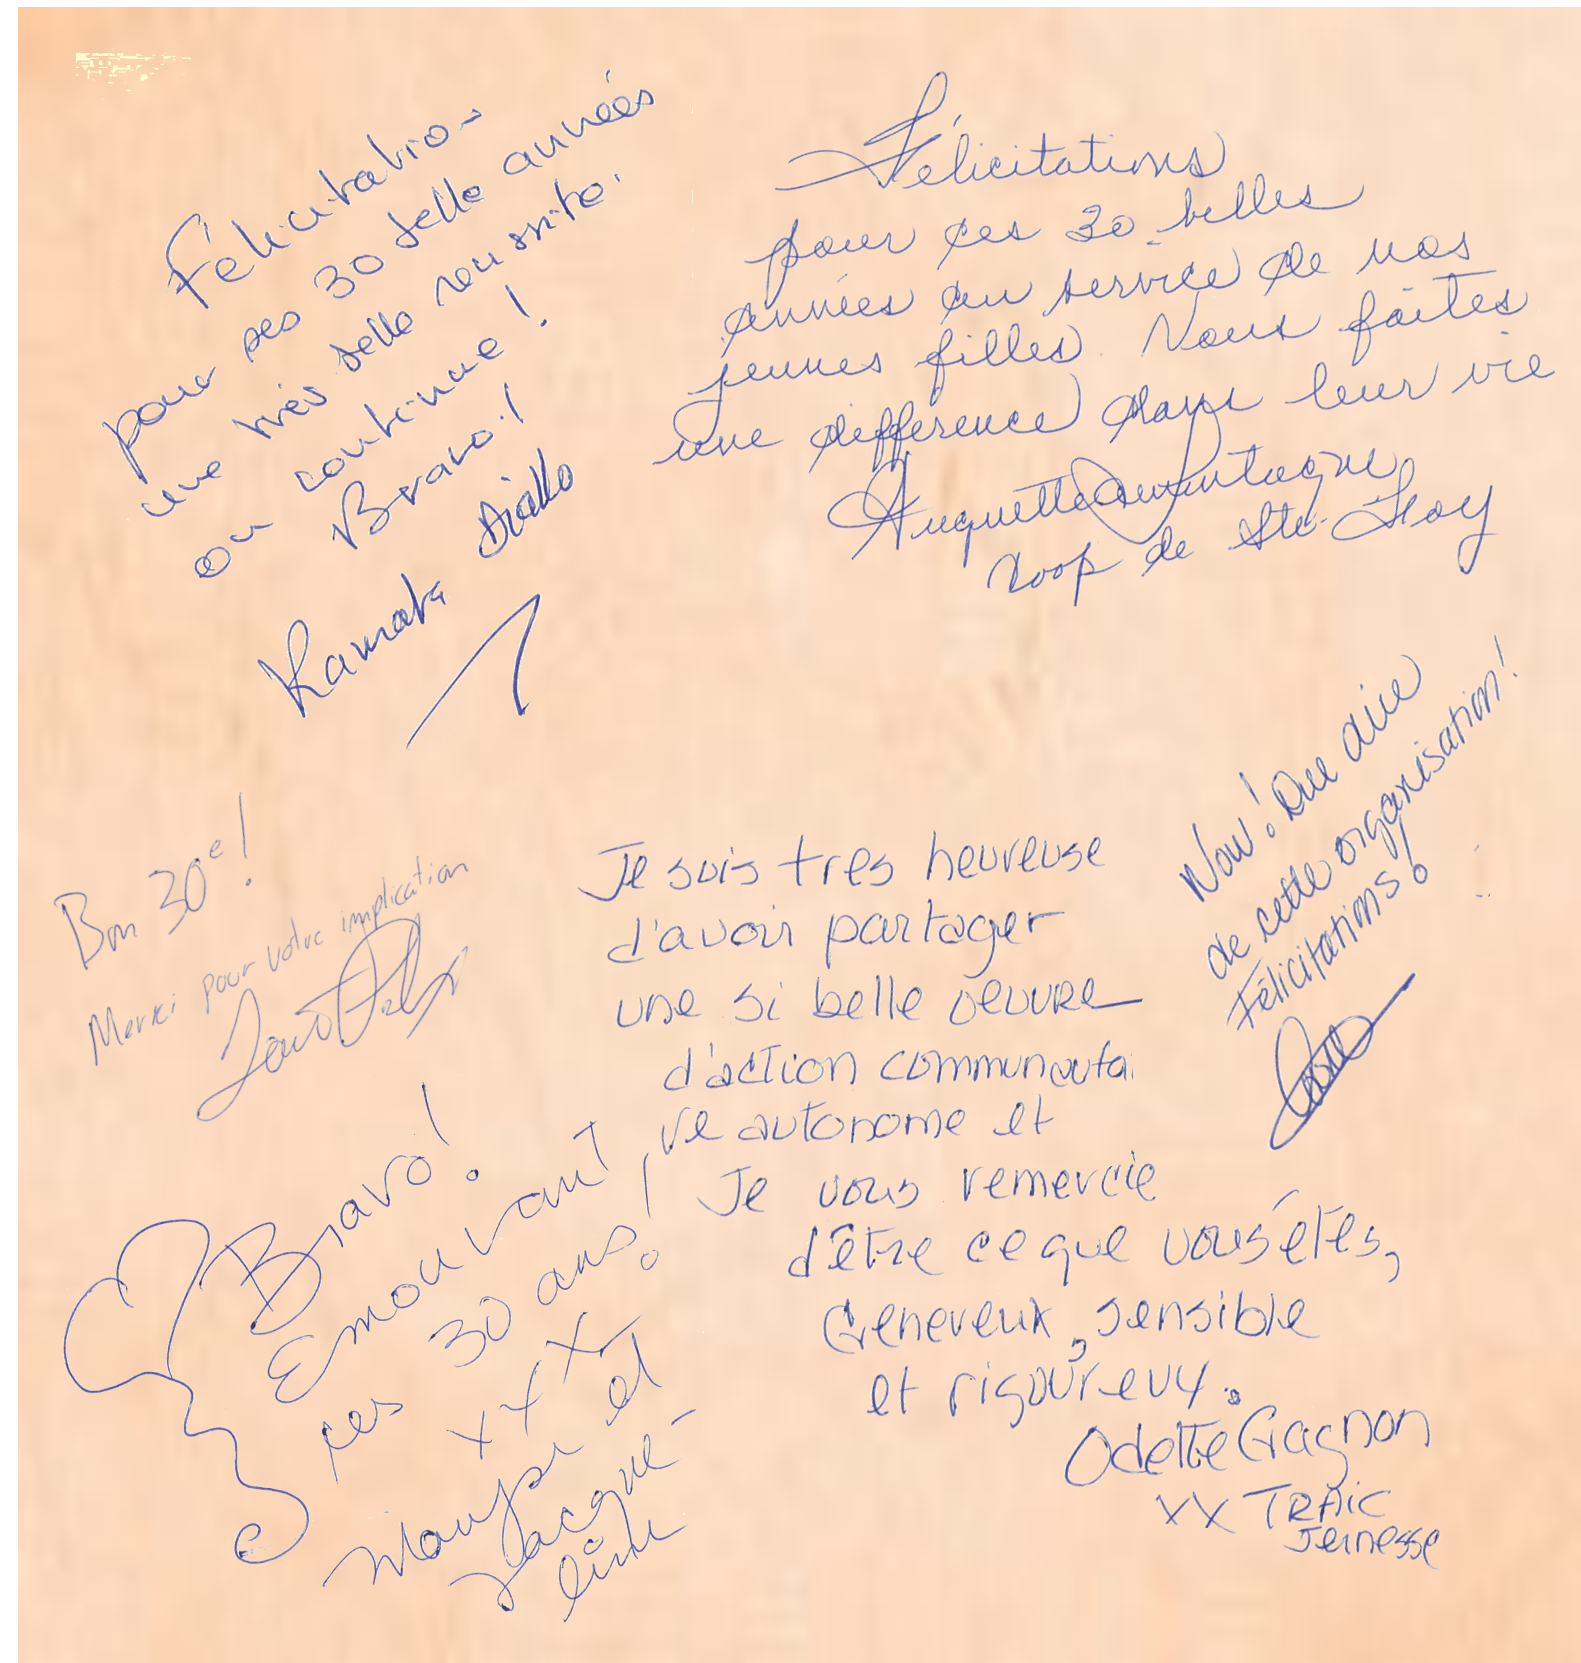 Félicitatio-
pour ses 30 belle années
une très belle reussite.
on continue!
Bravo!
Kamata Diallo
Félicitations
pour ces 30 belles
années au service de nos
jeunes filles. Vous faites
une différence dans leur vie
Huguette
Coop de Ste-Foy
Bon 30e!
Merci pour votre implication
Je suis tres heureuse
d'avoir partager
une si belle oeuvre
d'action communauta.
re autonome et
Je vous remercie
d'être ce que vous êtes,
Genereux, sensible
et rigoureux.
Odette Gagnon
XX TRAIC
Jeunesse
Wow! Que dire
de cette organisation!
Félicitations!
Bravo!
Emouvant
ces 30 ans!
XXX
et
Jacque-
line